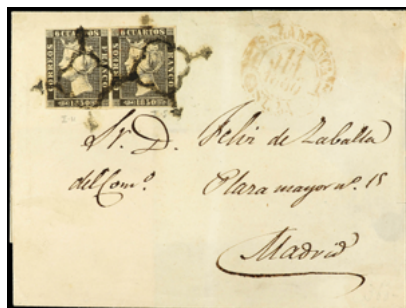 6 CUARTOS 6 CUARTOS
CORREOS FRANCO CORREOS FRANCO
1850 1850
Sr. D. Felix de Zaballa
del Com.º Plaza mayor nº. 15
Madrid